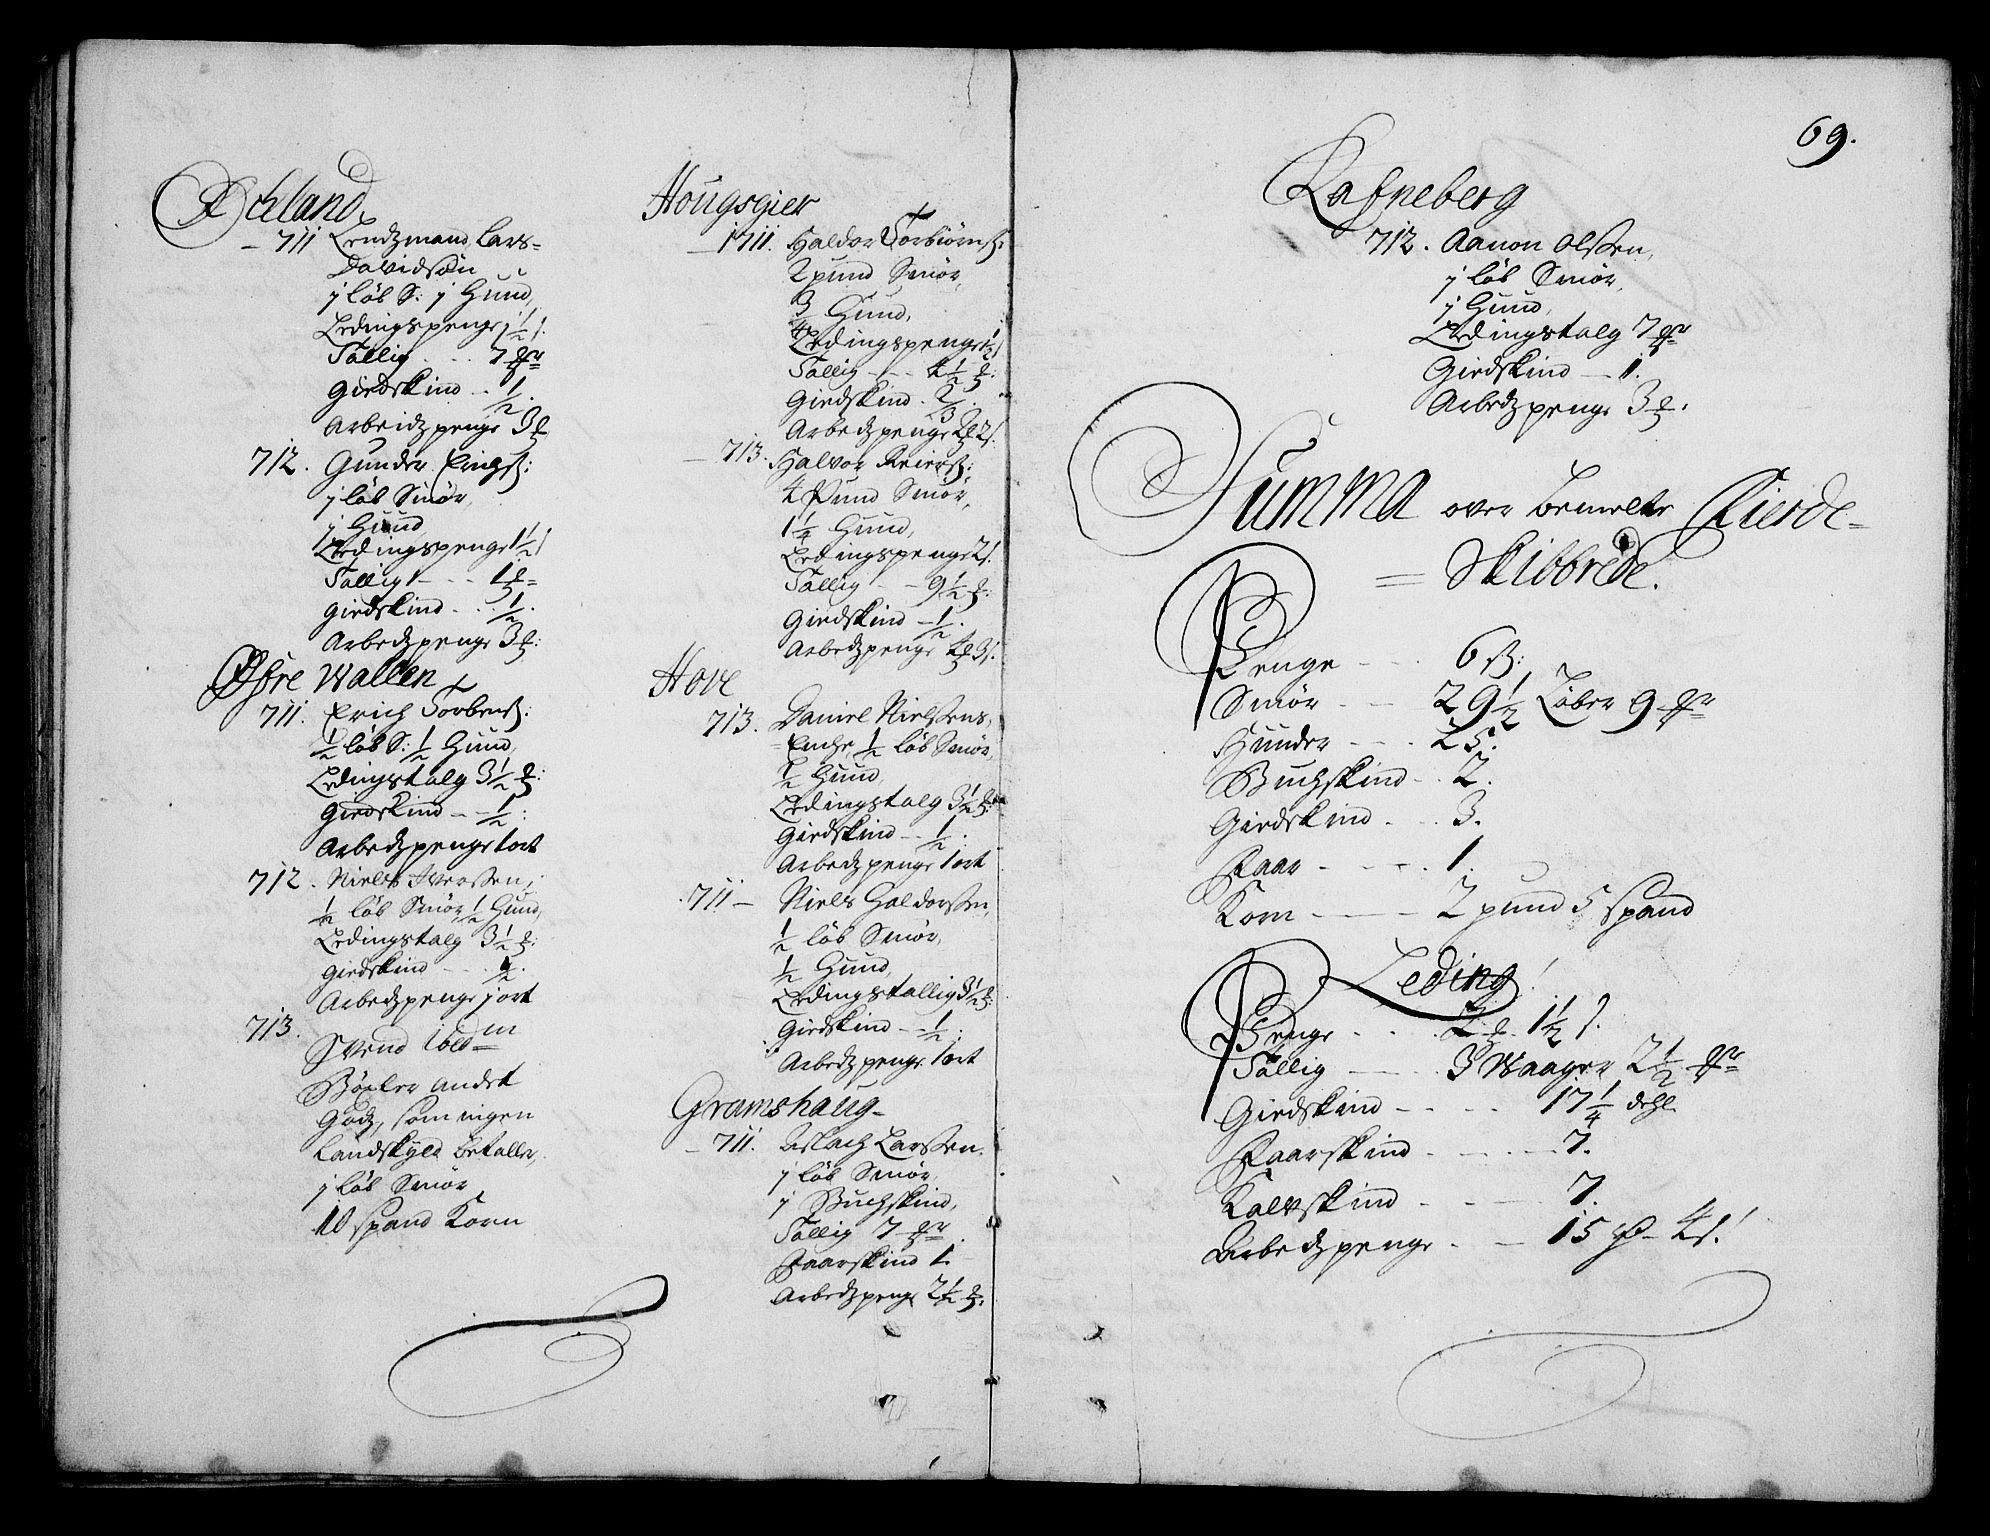 Achland
711 Lendzmand Lars
Davidsøn
j løb S: j Hund,
Ledingspenge 1½ s.
Tallig - - - 7
Giedskind - ½.
Arbeidzpenge 3
712. Gunder Erichs:
j løb Smør,
j Hund
Ledingspenge 1½ s
Tallig - - - 1
Giedskind . . ½.
Arbedzpenge 3
Øfre Wallen
711. Erich Torbens:
½ løb S: ½ Hund,
Ledingstalg 3½
Giedskind - - ½:
Arbedzpenge 1 ort
712. Niels Iverssen,
½ løb Smør ½ Hund,
Ledingstalg 3½
Giedskind - - - ½.
Arbedzpenge j ort
713.
Svend ibdm
Bøxler andet
Godz, som ingen
Landskyld betaller,
j løb Smør
10 spand Korn
Hougsgier
1711. Haldor Torbiørns:
2 pund Smør,
¾ Hund,
Ledingspenge 1½ s
Tallig - - - 4½
Giedskind . 2/3.
Arbedzpenge 2 2 s.
713. Halvor Reiers:
4 Pund Smør,
1¼ Hund,
Ledingspenge 2 s.
Tallig - - 9½
Giedskind - ½.
Arbedzpenge 4 3 s.
Hove
713. Daniel Nielssens
Enche, ½ løb Smør
½ Hund,
Ledingstalg 3½
Giedskind - - ½.
Arbedzpenge 1 ort
711 - Niels Haldorssen,
½ løb Smør,
½ Hund,
Ledingstallig 3½
Giedskind - - ½.
Arbedzpenge 1 ort
Gramshaug
711. Aslach Larssen.
j løb Smør,
j Buchskind,
Tallig 7
Faarskind 1.
Arbedzpenge 2½
69.
Rafneberg
712. Aanon Olssen,
j løb Smør,
j Hund,
Ledingstalg 7
Giedskind - 1.
Arbedzpenge 3
Summa over bemelte Fierde-
= Skibbrede.
Penge - - - 6
Smør - - 29½ Løber 9
Hunder - - - 25.
Buchskind - . 2.
Giedskind . - . 3.
Faar - - - - . 1.
Korn - - - 2 pund 5 spand
Leding
Penge - - . 2 1½ s.
Tallig - - - 3 Waager 2½
Giedskind - - - - 17¼ dehl
Faarskind - - - - 7.
Kalvskind - - - - 7.
Arbedzpenge - - 15 4 s.